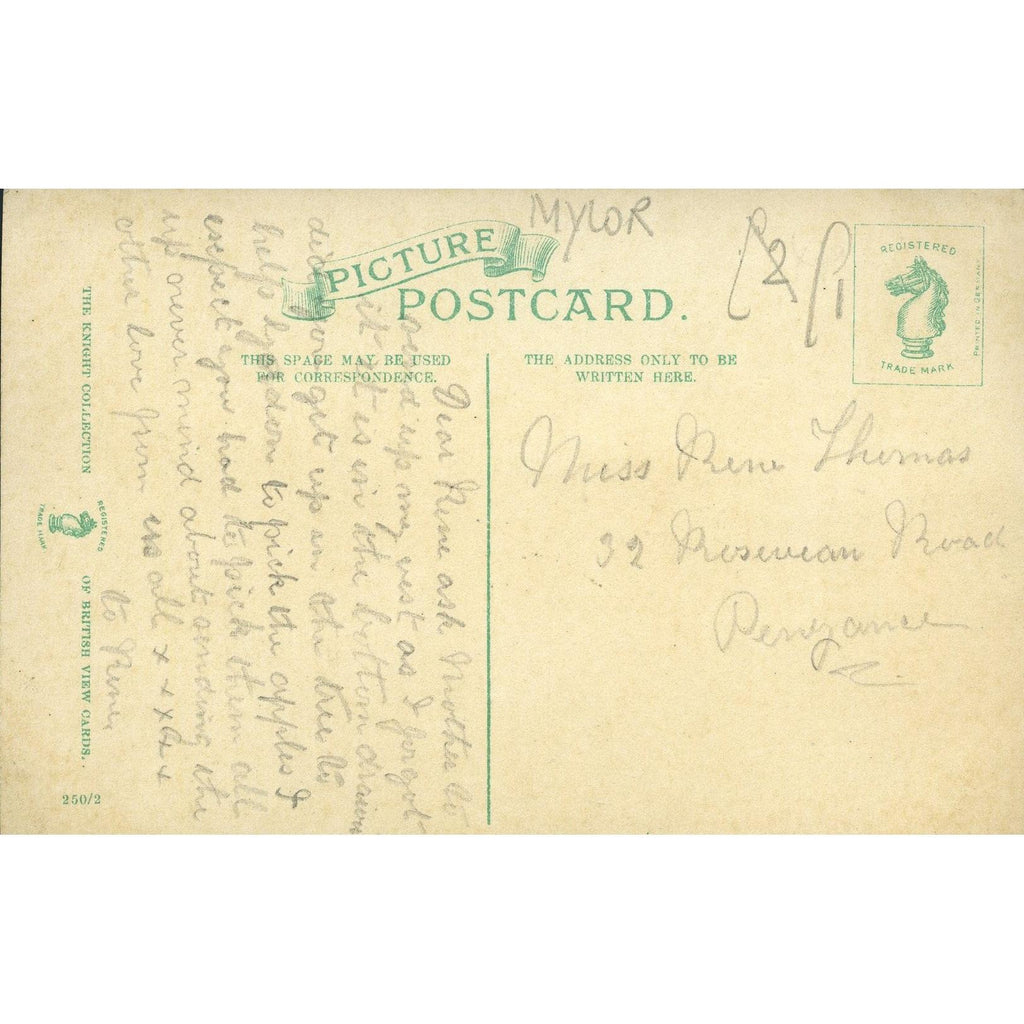 MYLOR
PICTURE
POSTCARD.
REGISTERED
TRADE MARK
PRINTED IN GERMANY
THIS SPACE MAY BE USED
FOR CORRESPONDENCE.
THE ADDRESS ONLY TO BE
WRITTEN HERE.
Dear Rene ask Mother to
send up my vest as I forgot
it it is in the bottom drawer
did you get up in the tree to
help to pick the apples I
expect you had to pick them all
up never mind about sending the
other love from us all x x x x x
to Rene
Miss Rene Thomas
32 Rosevean Road
Penzance
THE KNIGHT COLLECTION
REGISTERED
TRADE MARK
OF BRITISH VIEW CARDS.
250/2